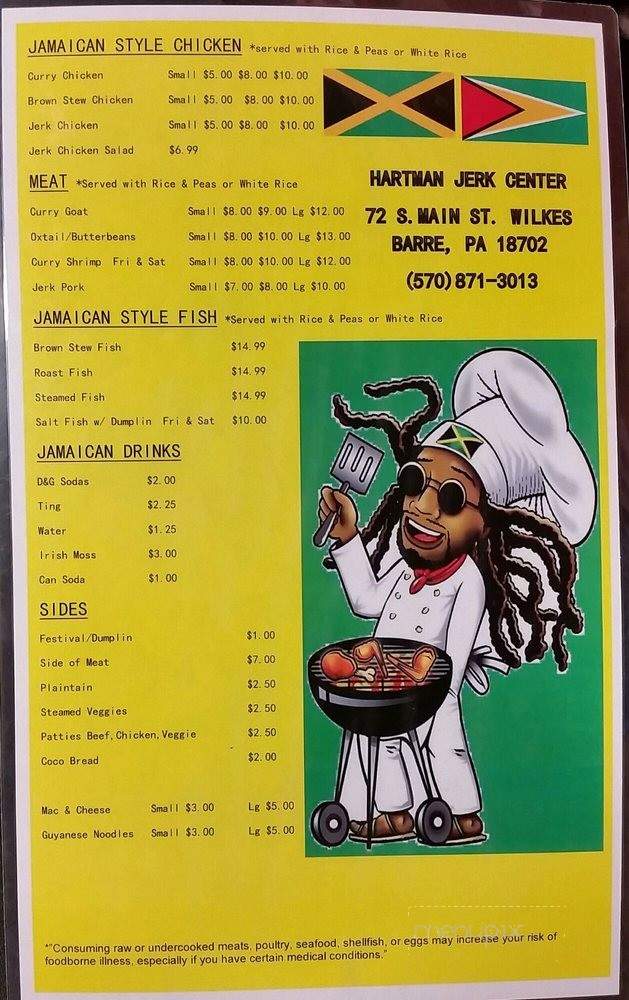 JAMAICAN STYLE CHICKEN *served with Rice & Peas or White Rice
Curry Chicken Small $5.00 $8.00 $10.00
Brown Stew Chicken Small $5.00 $8.00 $10.00
Jerk Chicken Small $5.00 $8.00 $10.00
Jerk Chicken Salad $6.99
MEAT *Served with Rice & Peas or White Rice
Curry Goat Small $8.00 $9.00 Lg $12.00
Oxtail/Butterbeans Small $8.00 $10.00 Lg $13.00
Curry Shrimp Fri & Sat Small $8.00 $10.00 Lg $12.00
Jerk Pork Small $7.00 $8.00 Lg $10.00
HARTMAN JERK CENTER
72 S. MAIN ST. WILKES
BARRE, PA 18702
(570)871-3013
JAMAICAN STYLE FISH *Served with Rice & Peas or White Rice
Brown Stew Fish $14.99
Roast Fish $14.99
Steamed Fish $14.99
Salt Fish w/ Dumplin Fri & Sat $10.00
JAMAICAN DRINKS
D&G Sodas $2.00
Ting $2.25
Water $1.25
Irish Moss $3.00
Can Soda $1.00
SIDES
Festival/Dumplin $1.00
Side of Meat $7.00
Plaintain $2.50
Steamed Veggies $2.50
Patties Beef, Chicken, Veggie $2.50
Coco Bread $2.00
Mac & Cheese Small $3.00 Lg $5.00
Guyanese Noodles Small $3.00 Lg $5.00
*"Consuming raw or undercooked meats, poultry, seafood, shellfish, or eggs may increase your risk of
foodborne illness, especially if you have certain medical conditions."